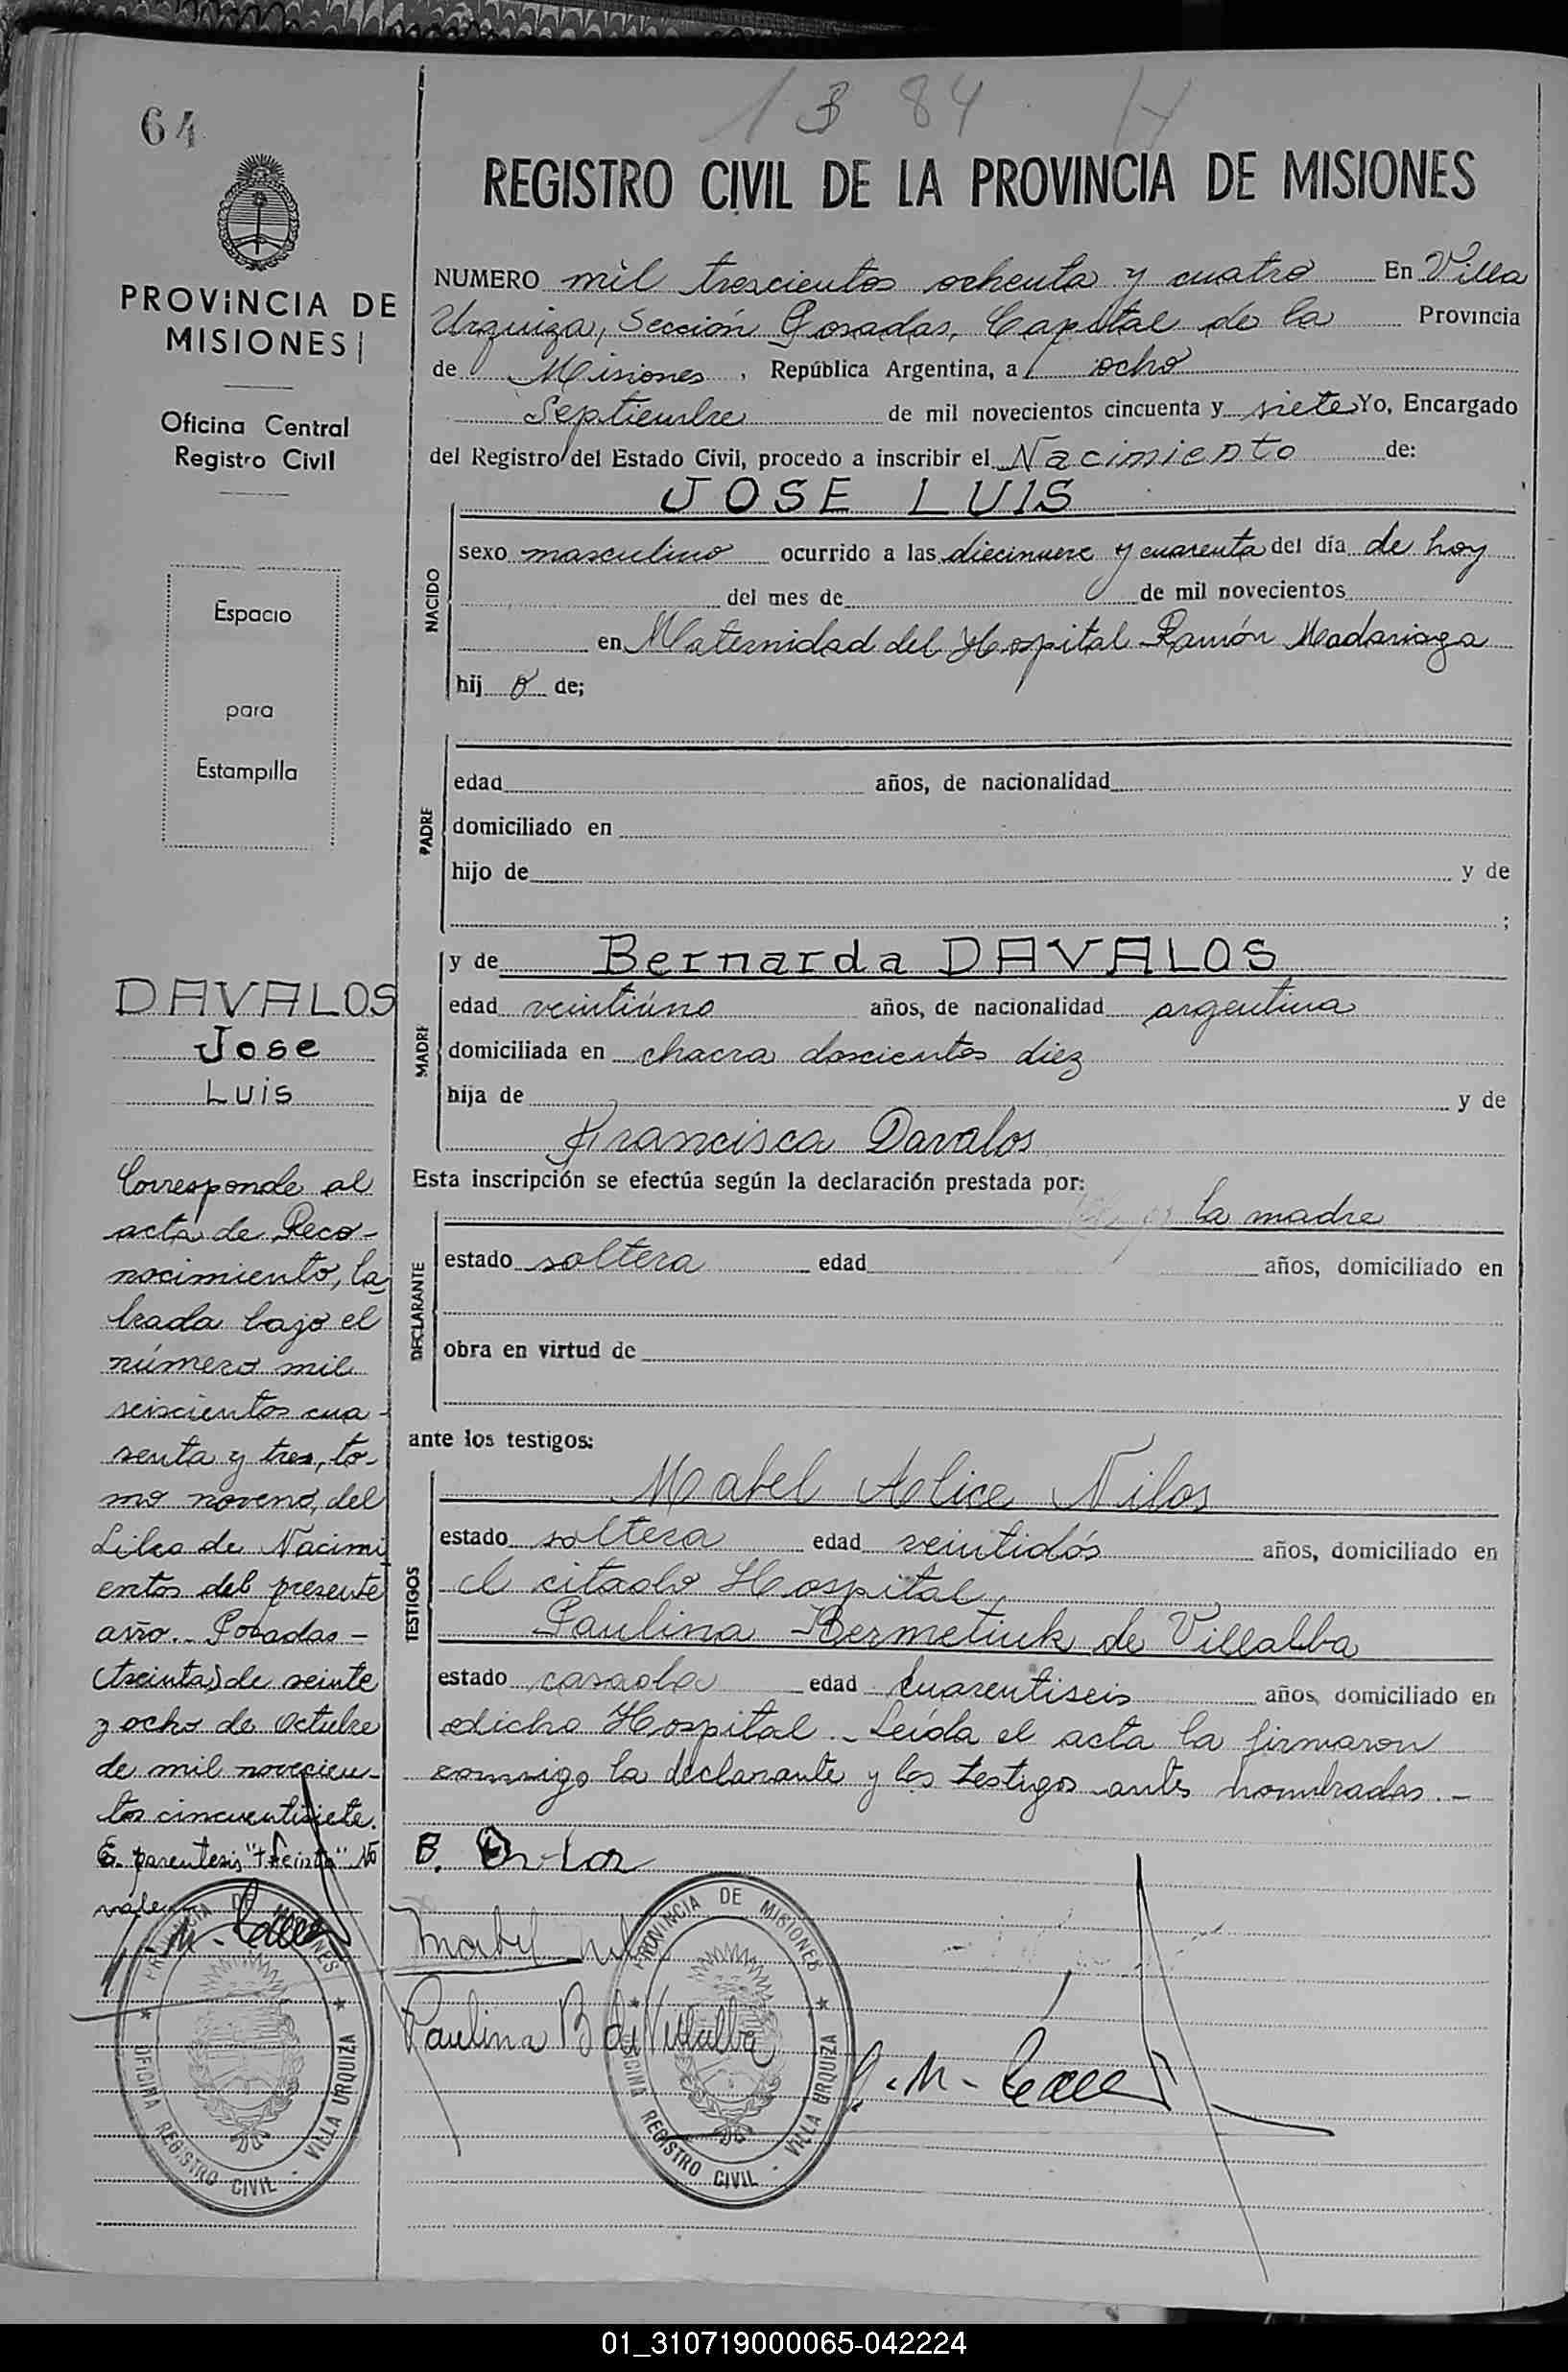 1384 H
64
REGISTRO CIVIL DE LA PROVINCIA DE MISIONES
PROVINCIA DE
MISIONES
Oficina Central
Registro Civil
Espacio
para
Estampilla
DAVALOS
Jose
Luis
Corresponde al
acta de Reco-
nocimiento, la
brada bajo el
número mil
seiscientos cua-
renta y tres, to-
mo noveno, del
Libro de Nacimi
entos del presente
año.- Posadas -
(treinta) de veinte
y ocho de Octubre
de mil novecien-
tos cincuentisiete.
E. parentesis "treinta" No
vale
PROVINCIA DE MISIONES
OFICINA REGISTRO CIVIL - VILLA URQUIZA
NUMERO mil trescientos ochenta y cuatro En Villa
Urquiza, Sección Posadas, Capital de la Provincia
de Misiones, República Argentina, a ocho
Septiembre de mil novecientos cincuenta y siete Yo, Encargado
del Registro del Estado Civil, procedo a inscribir el Nacimiento de:
JOSE LUIS
NACIDO
sexo masculino ocurrido a las diecinueve y cuarenta del día de hoy
del mes de de mil novecientos
en Maternidad del Hospital Ramón Madariaga
hij o de;
PADRE
edad años, de nacionalidad
domiciliado en
hijo de y de
;
MADRE
y de Bernarda DAVALOS
edad veintiúno años, de nacionalidad argentina
domiciliada en chacra doscientos diez
hija de y de
Francisca Davalos
Esta inscripción se efectúa según la declaración prestada por:
DECLARANTE
la madre
estado soltera edad años, domiciliado en
obra en virtud de
ante los testigos:
TESTIGOS
Mabel Alice Nilos
estado soltera edad veintidós años, domiciliado en
el citado Hospital
Paulina Bermetiuk de Villalba
estado casada edad cuarentiseis años, domiciliado en
dicho Hospital.- Leída el acta la firmaron
conmigo la declarante y los testigos antes nombrados.-
B.
Mabel
Paulina B de Villalba
PROVINCIA DE MISIONES
OFICINA REGISTRO CIVIL - VILLA URQUIZA
01_310719000065-042224